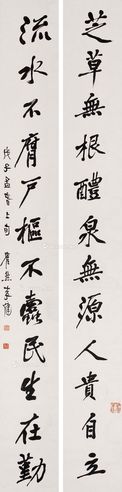 芝草無根醴泉無源人貴自立
流水不腐戶樞不蠹民生在勤
戊子孟春上旬